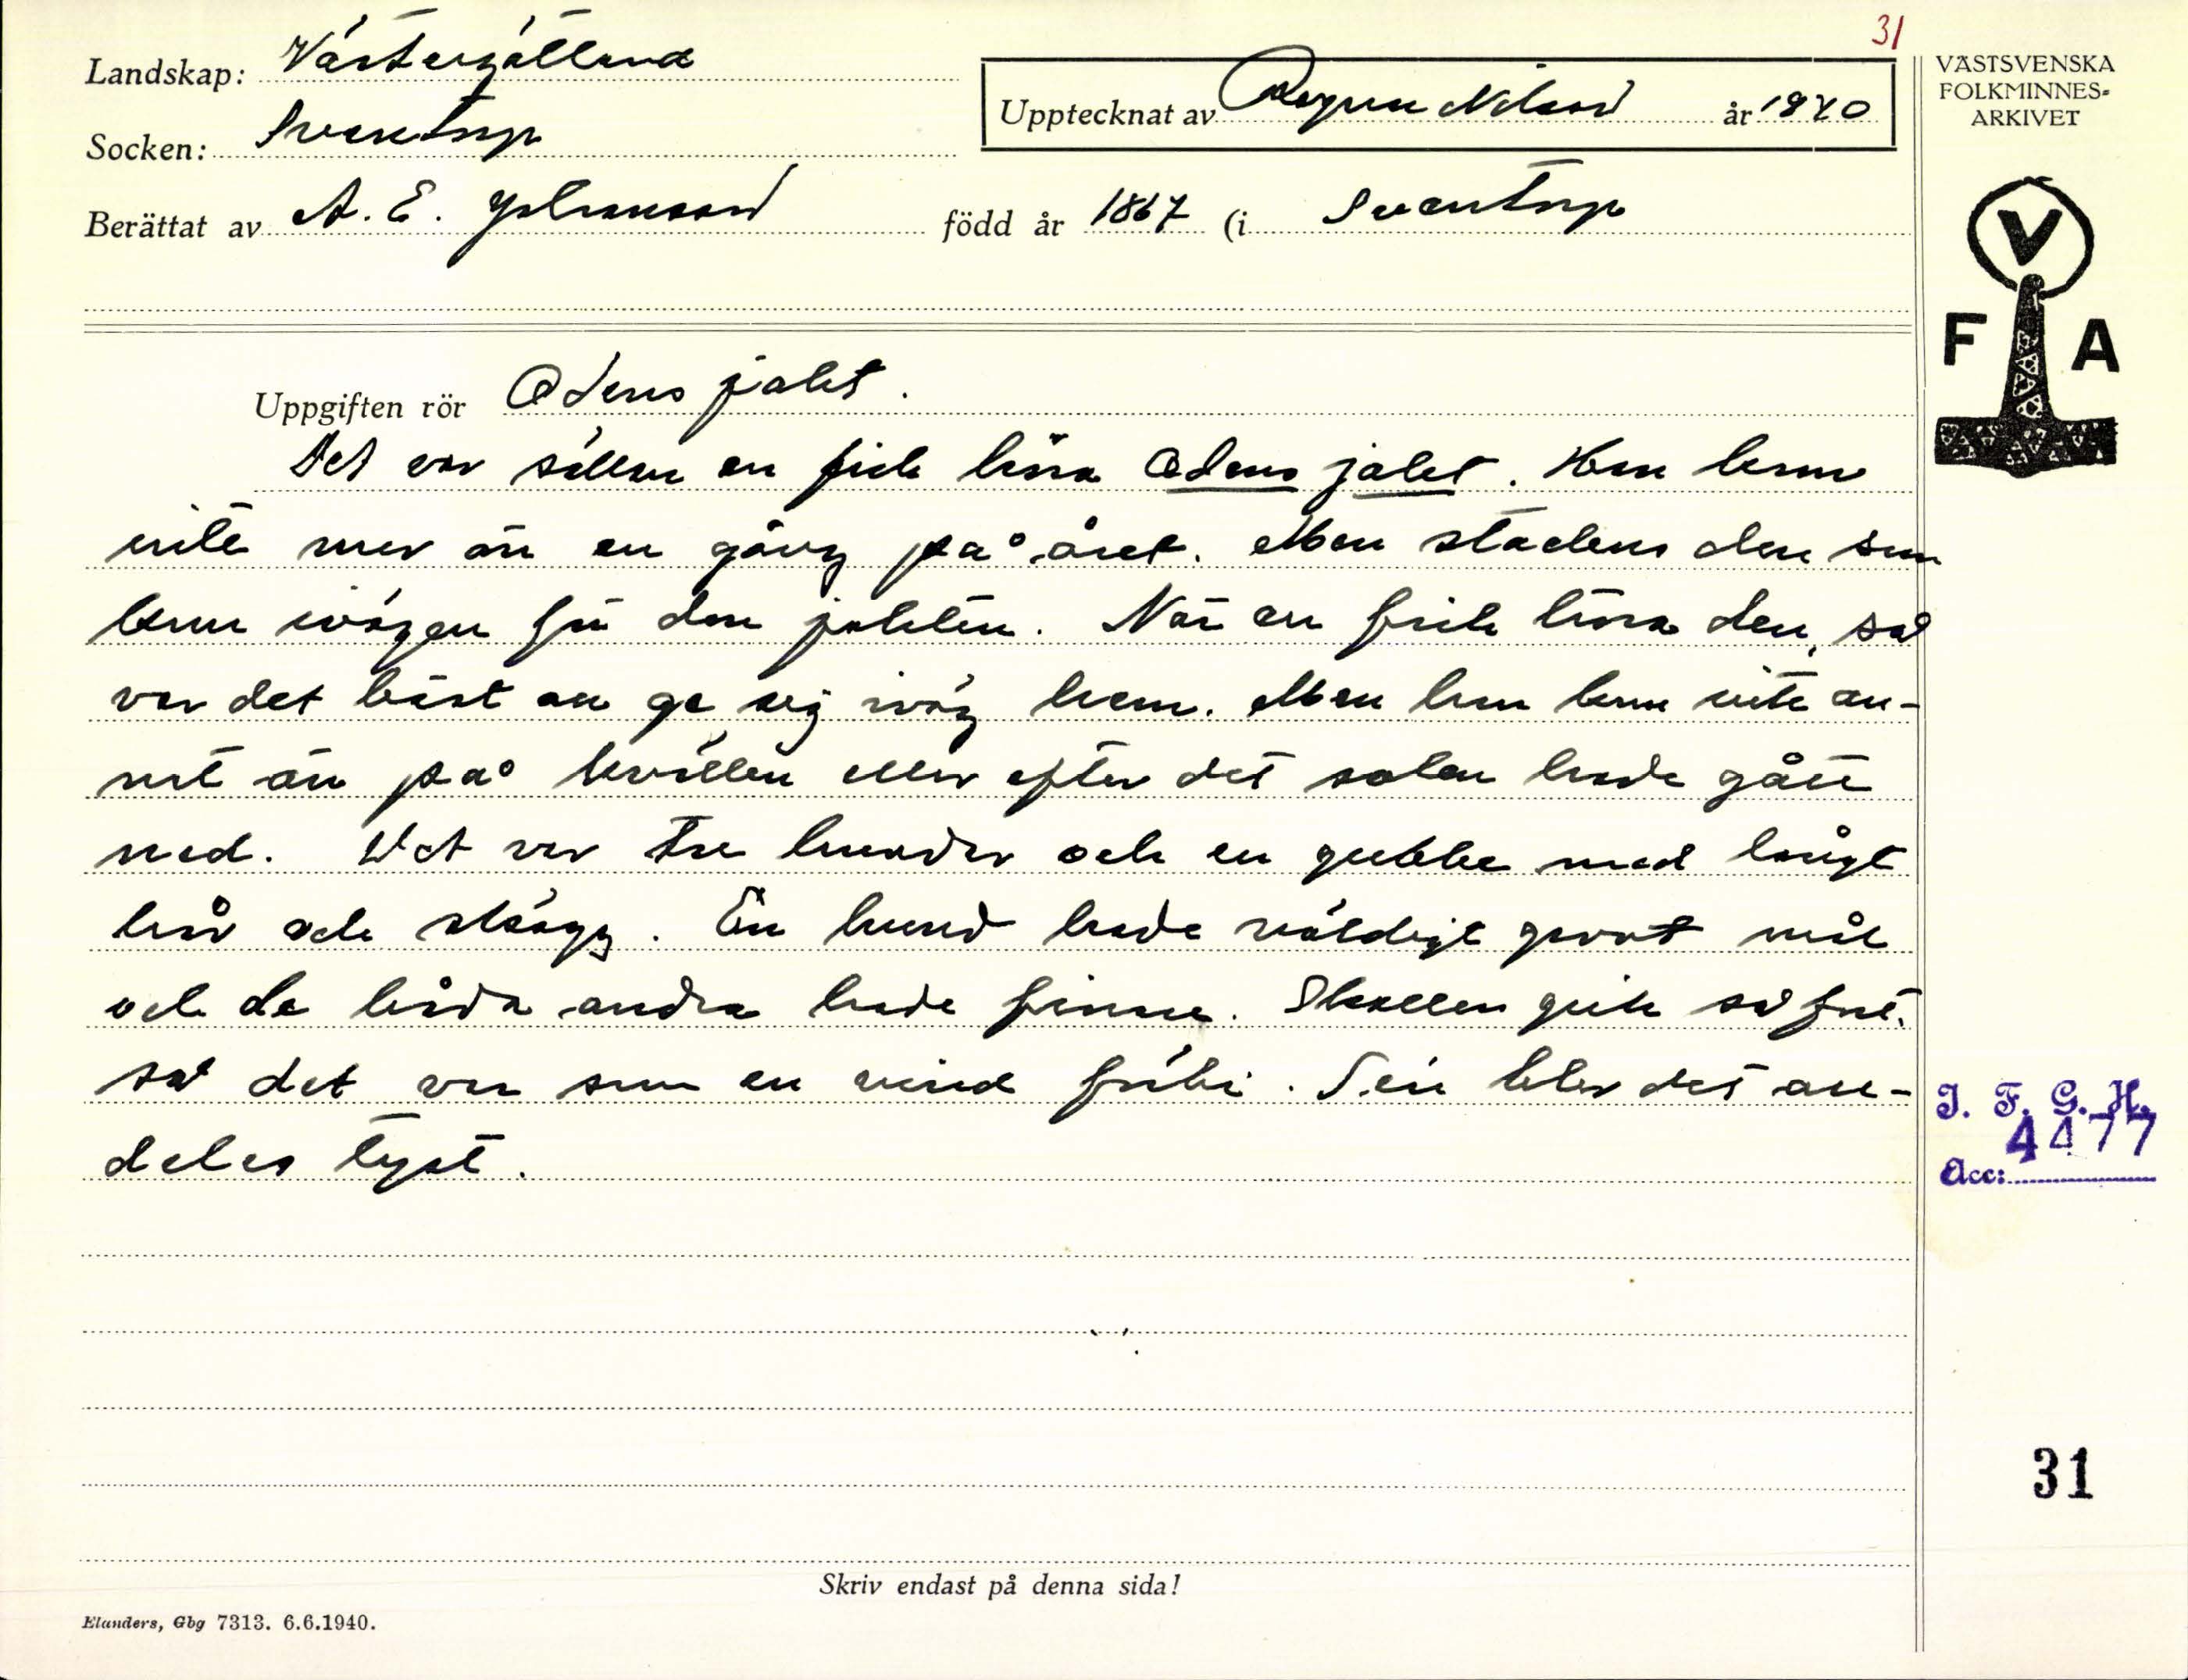 31
Landskap: Västergötland
Upptecknat av Ragnar Nilsson år 1940
VÄSTSVENSKA
FOLKMINNES-
ARKIVET
Socken: Sventorp
Berättat av A. E. Johansson född år 1867 (i Sventorp
V
F A
Uppgiften rör Odens jakt.
Det var sällan en fick höra Odens jakt. Han kom
inte mer än en gång på året. Men stackens den som
kom ivägen för den jakten. När en fick höra den, så
var det bäst att ge sig iväg hem. Men han kom inte an-
nat än på kvällen eller efter det solen hade gått
ned. Det var tre hundar och en gubbe med långt
hår och skägg. En hund hade väldigt grovt mål
och de båda andra hade finne. Skallen gick så fort.
så det var som en vind förbi. Sen blev det all-
deles tyst.
I. F. G. H.
4477
Acc:
31
Skriv endast på denna sida!
Elanders, Gbg 7313. 6.6.1940.